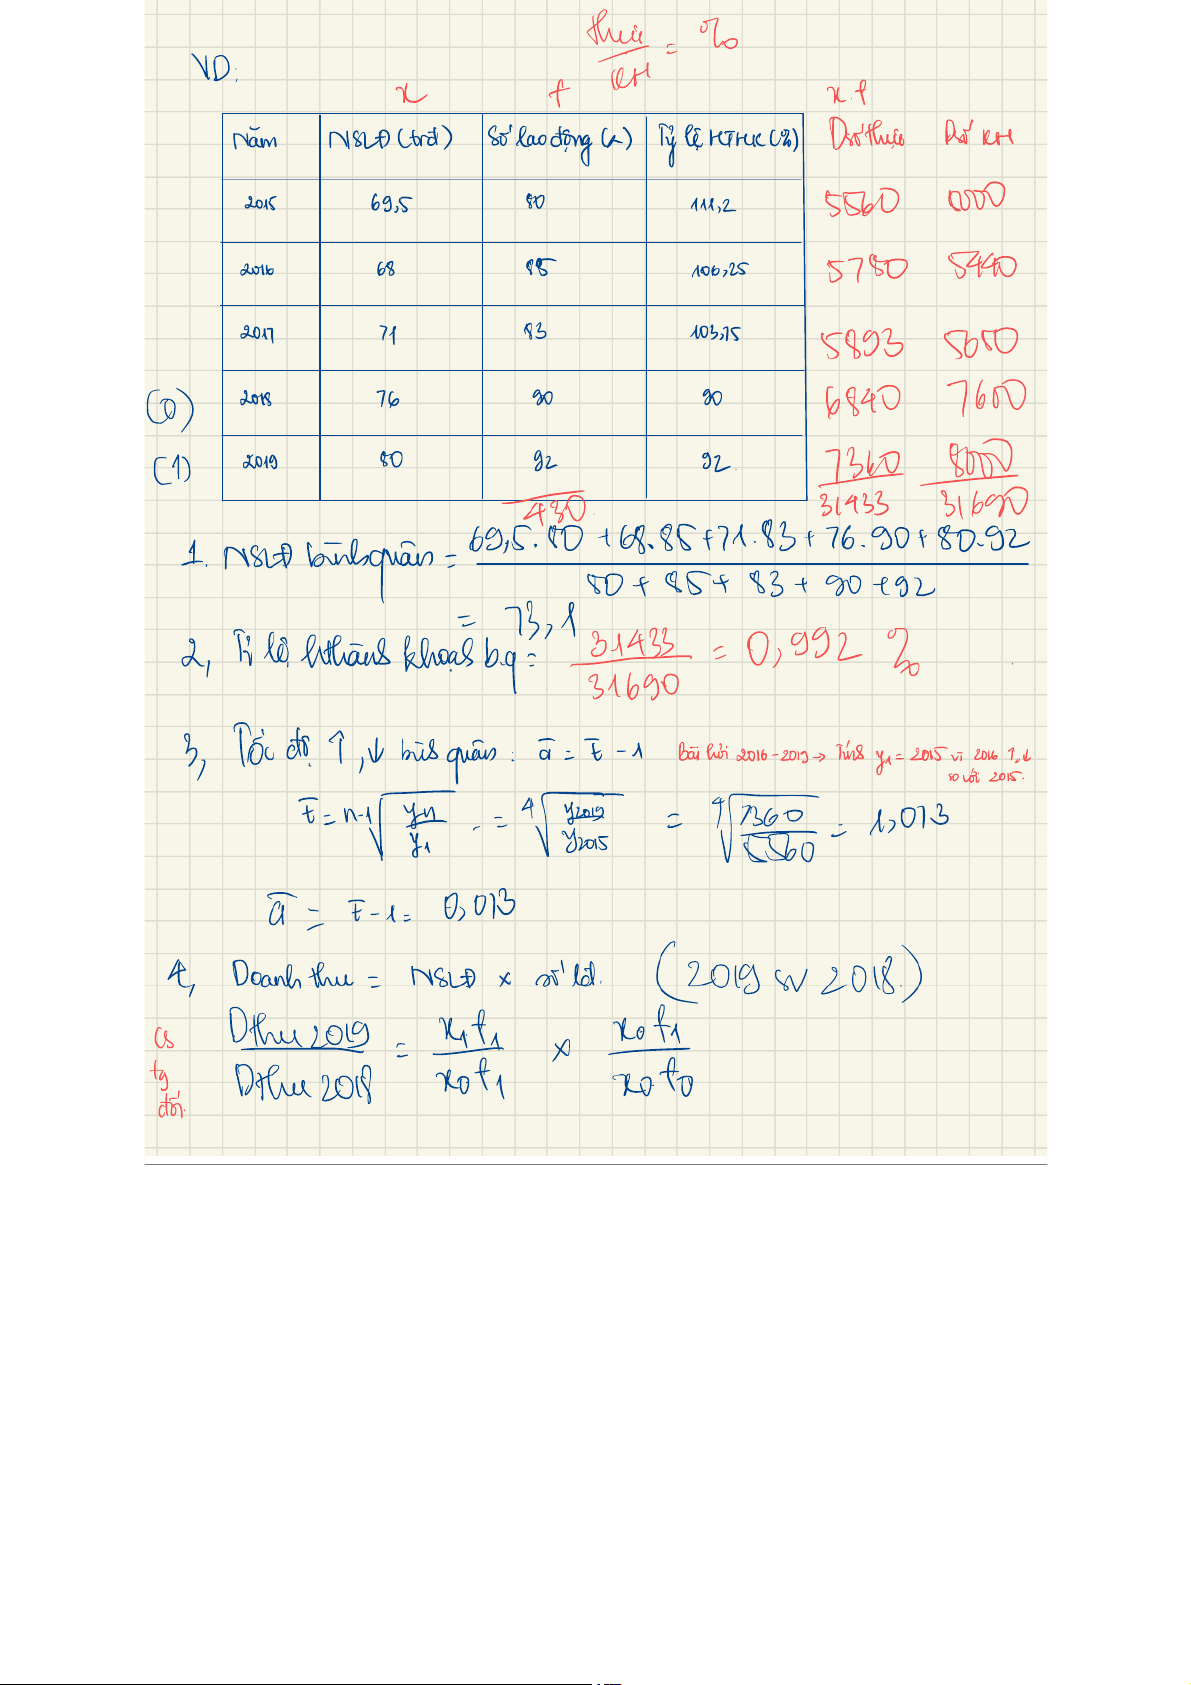 thực
KH = %
VD:
x f x.f
Năm NSLĐ (trđ) Số lao động (n) Tỷ lệ HTHK (%) Dsố thực Dsố KH
2015 69,5 80 111,2 5560
2016 68 85 106,25 5780 5440
2017 71 83 103,75 5893 5650
(0) 2018 76 90 90 6840 7600
(1) 2019 80 92 92 7360 8000
430 31433 31690
1. NSLĐ bình quân = 69,5.80 + 68.85 + 71.83 + 76.90 + 80.92
80 + 85 + 83 + 90 + 92
= 73,1
2, Tỉ lệ hthành khoạch b.q = 31433 / 31690 = 0,992 %
3, Tốc độ ↑, ↓ bình quân: a̅ = t̅ - 1 bài hỏi 2016-2019 → Tính y1 = 2015 vì 2016 ↑,↓
so với 2015.
t̅ = n-1√(yn/y1) = 4√(y2019/y2015) = 4√(7360/5560) = 1,073
a̅ = t̅ - 1 = 0,073
4, Doanh thu = NSLĐ x số lđ. (2019 so 2018.)
Cs Dthu 2019 / Dthu 2018 = x1f1 / x0f1 x x0f1 / x0f0
tg
đối.